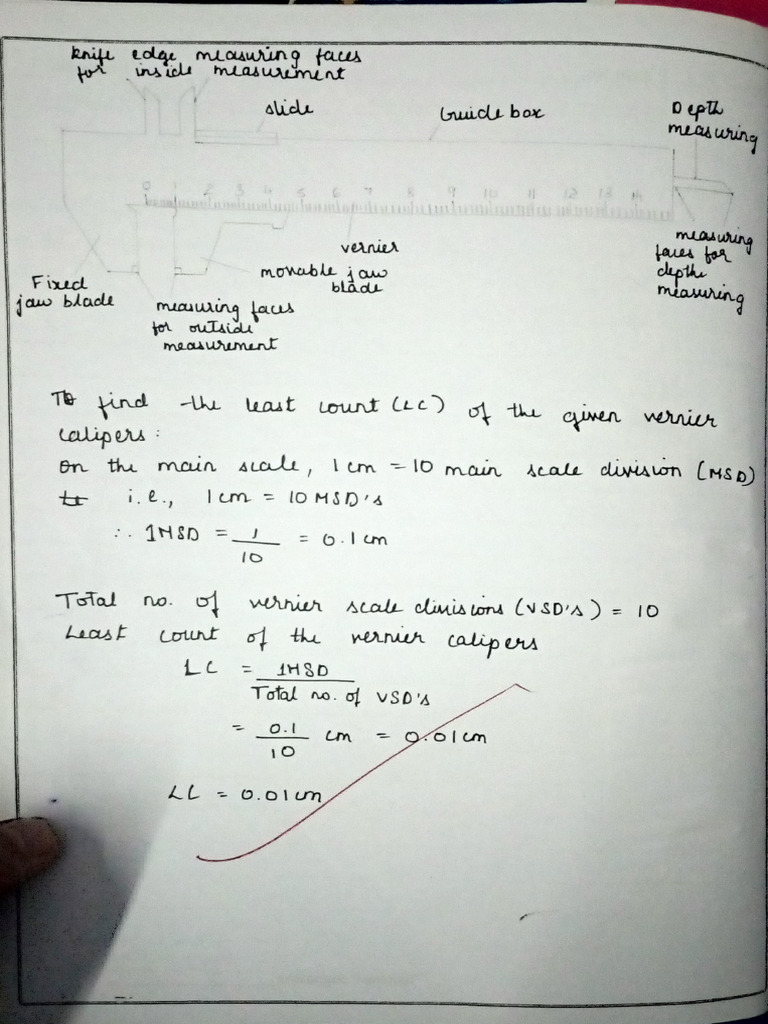 knife edge measuring faces
for inside measurement
slide
Guide box
Depth
measuring
0 1 2 3 4 5 6 7 8 9 10 11 12 13 14
vernier
movable jaw
blade
Fixed
jaw blade
measuring faces
for outside
measurement
measuring
faces for
depth
measuring
To find the least count (LC) of the given vernier
calipers:
On the main scale, 1 cm = 10 main scale division (MSD)
i.e., 1 cm = 10 MSD's
∴ 1MSD = 1/10 = 0.1 cm
Total no. of vernier scale divisions (VSD's) = 10
Least count of the vernier calipers
LC = 1MSD / Total no. of VSD's
= 0.1/10 cm = 0.01 cm
LC = 0.01 cm